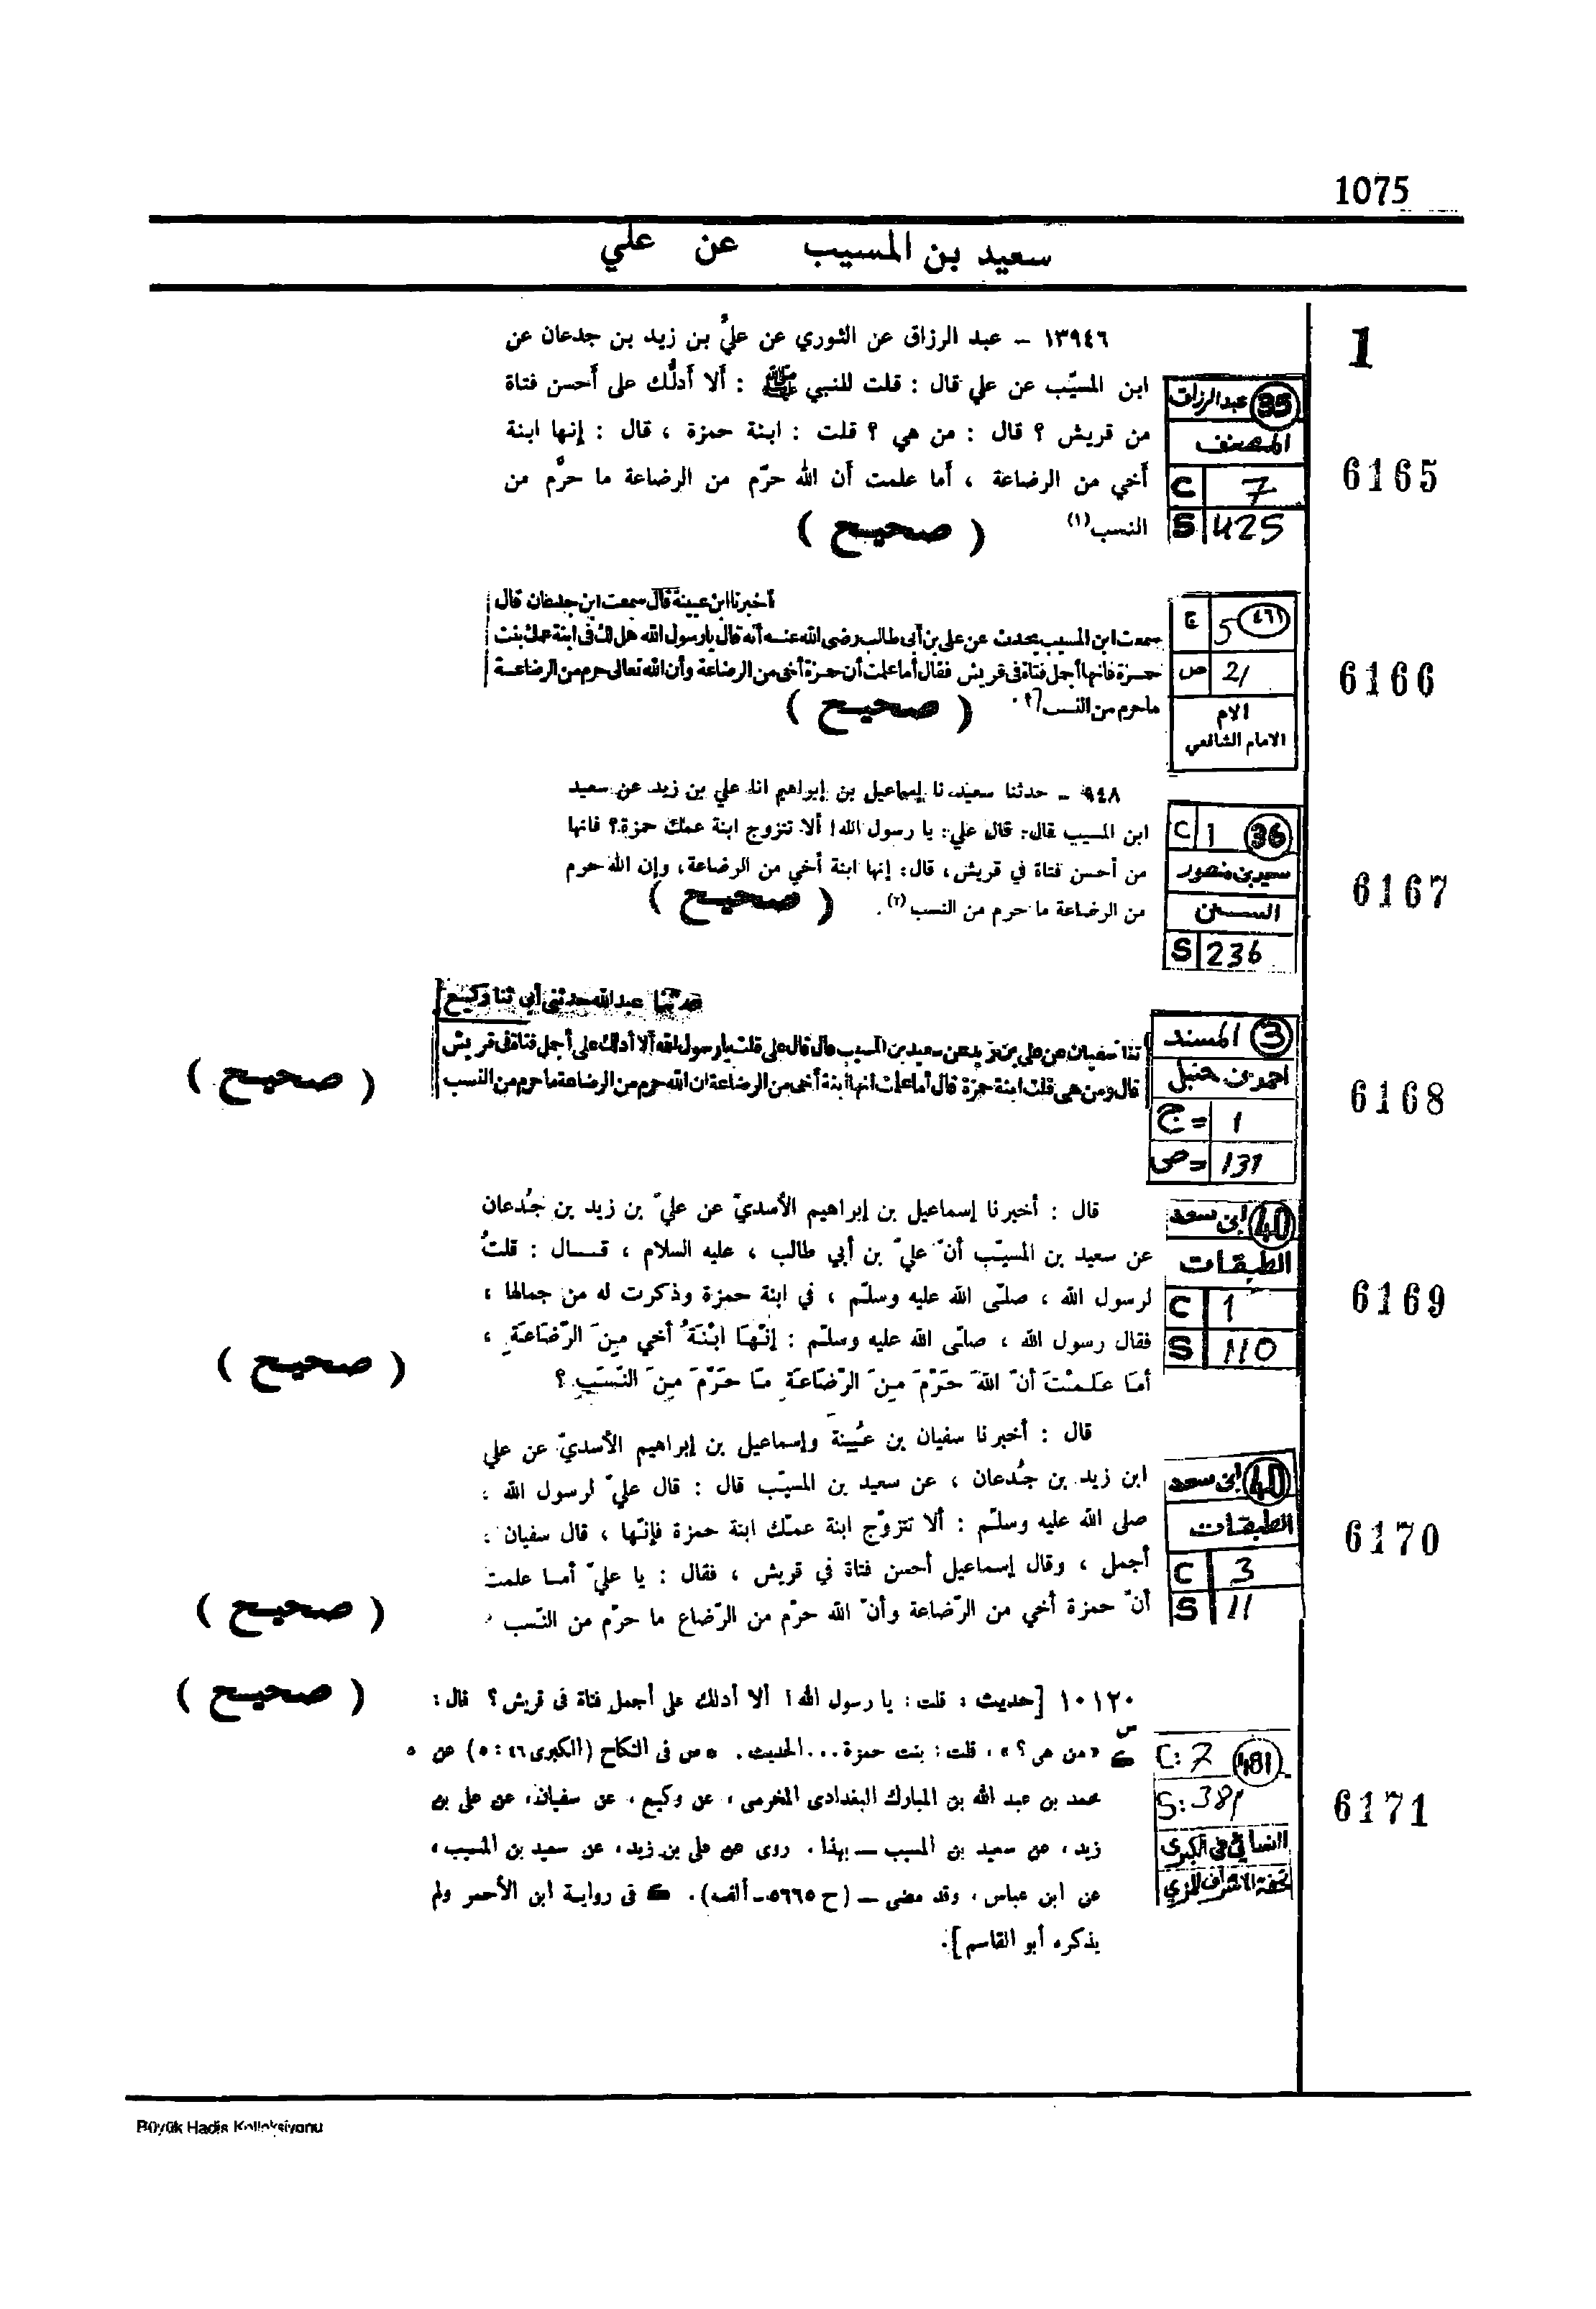 1075
سعيد بن المسيب عن علي
1
١٣٩٤٦ – عبد الرزاق عن الثوري عن عليّ بن زيد بن جدعان عن
ابن المسيّب عن علي قال : قلت للنبي ﷺ : ألا أدلُّك على أحسن فتاة
من قريش ؟ قال : من هي ؟ قلت : ابنة حمزة ، قال : إنها ابنة
أخي من الرضاعة ، أما علمت أن الله حرّم من الرضاعة ما حرَّم من
النسب (١)
( صحيح )
عبد الرزاق 35
المصنف
C 7
S 425
6165
أخبرنا ابن عيينة قال سمعت ابن جدعان قال
سمعت ابن المسيب يحدث عن علي بن أبي طالب رضى الله عنه أنه قال يا رسول الله هل لك فى ابنة عمك بنت
حمزة فانها أجمل فتاة فى قريش فقال أما علمت أن حمزة أخى من الرضاعة وأن الله تعالى حرم من الرضاعة
ما حرم من النسب
( صحيح )
ج 5 ٤٦١
ص 21
الام
الامام الشافعي
6166
٩٤٨ – حدثنا سعيد نا إسماعيل بن إبراهيم انا علي بن زيد عن سعيد
ابن المسيب قال: قال علي: يا رسول الله! ألا تتزوج ابنة عمك حمزة؟ فانها
من أحسن فتاة في قريش، قال: إنها ابنة أخي من الرضاعة، وإن الله حرم
من الرضاعة ما حرم من النسب (٢).
( صحيح )
C 1 36
سعيد بن منصور
السنن
S 236
6167
حدثنا عبد الله حدثنى أبي ثنا وكيع
ثنا سفيان عن على بن زيد عن سعيد بن المسيب قال قال على قلت يا رسول الله ألا أدلك على أجمل فتاة فى قريش
قال ومن هى قلت ابنة حمزة قال أما علمت انها ابنة أخى من الرضاعة ان الله حرم من الرضاعة ما حرم من النسب
( صحيح )
المسند 3
احمد بن حنبل
ج = 1
ص = 131
6168
قال : أخبرنا إسماعيل بن إبراهيم الأسديّ عن عليّ بن زيد بن جُدعان
عن سعيد بن المسيّب أنّ عليّ بن أبي طالب ، عليه السلام ، قال : قلتُ
لرسول الله ، صلّى الله عليه وسلّم ، في ابنة حمزة وذكرت له من جمالها ،
فقال رسول الله ، صلّى الله عليه وسلّم : إنّهَا ابْنَةُ أخي مِنَ الرّضَاعَةِ ،
أمَا عَلِمْتَ أنّ اللهَ حَرّمَ مِنَ الرّضَاعَةِ مَا حَرّمَ مِنَ النّسَبِ ؟
( صحيح )
ابن سعد 40
الطبقات
C 1
S 110
6169
قال : أخبرنا سفيان بن عُيينة وإسماعيل بن إبراهيم الأسديّ عن علي
ابن زيد بن جُدعان ، عن سعيد بن المسيّب قال : قال عليّ لرسول الله ،
صلى الله عليه وسلّم : ألا تتزوّج ابنة عمّك ابنة حمزة فإنّها ، قال سفيان :
أجمل ، وقال إسماعيل أحسن فتاة في قريش ، فقال : يا عليّ أما علمت
أنّ حمزة أخي من الرّضاعة وأنّ الله حرّم من الرّضاع ما حرّم من النّسب
( صحيح )
ابن سعد 40
الطبقات
C 3
S 11
6170
١٠١٢٠ [حديث : قلت : يا رسول الله! ألا أدلك على أجمل فتاة فى قريش؟ قال :
( صحيح )
س
ك «من هى؟»، قلت: بنت حمزة... الحديث. س فى النكاح (الكبرى ٤٦ : ٥) عن
محمد بن عبد الله بن المبارك البغدادى المخرمى، عن وكيع، عن سفيان، عن على بن
زيد، عن سعيد بن المسيب – بهذا. روى عن على بن زيد، عن سعيد بن المسيب،
عن ابن عباس، وقد مضى – (ح ٥٦٦٥-ألف). ك فى رواية ابن الأحمر ولم
يذكره أبو القاسم].
C: 7 481
S: 381
النسائي في الكبرى
تحفة الاشراف للمزي
6171
Büyük Hadis Kolleksiyonu